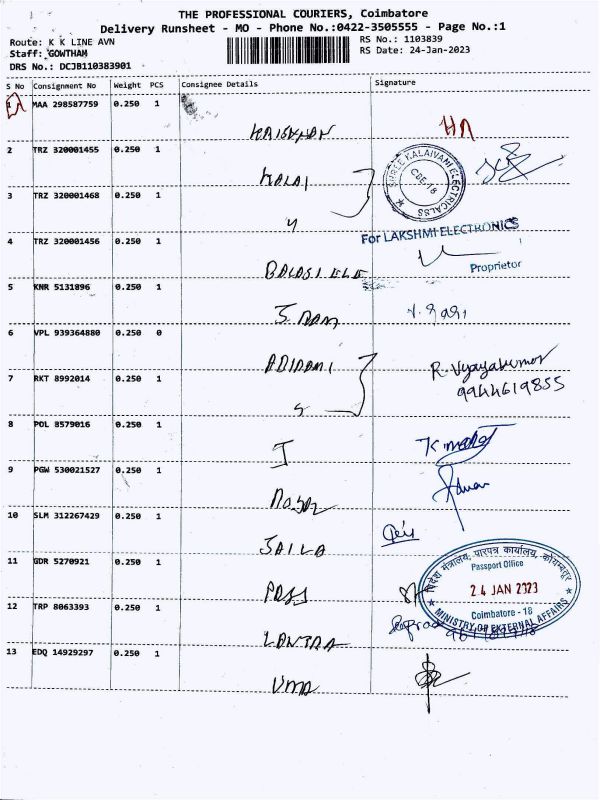 THE PROFESSIONAL COURIERS, Coimbatore
Delivery Runsheet - MO - Phone No.:0422-3505555 - Page No.:1
Route: K K LINE AVN
RS No.: 1103839
Staff: GOWTHAM
RS Date: 24-Jan-2023
DRS No.: DCJB110383901
S No Consignment No Weight PCS Consignee Details Signature
1 MAA 298587759 0.250 1
2 TRZ 320001455 0.250 1
KALAI
SHREE KALAIVANI ELECTRICALSS
CBE-18
3 TRZ 320001468 0.250 1
4 TRZ 320001456 0.250 1
For LAKSHMI ELECTRONICS
Proprietor
5 KNR 5131896 0.250 1
6 VPL 939364880 0.250 0
R. Vijayakumar
9944619855
7 RKT 8992014 0.250 1
8 POL 8579016 0.250 1
9 PGW 530021527 0.250 1
10 SLM 312267429 0.250 1
11 GDR 5270921 0.250 1
PASS
विदेश मंत्रालय, पारपत्र कार्यालय, कोयम्बत्तूर
Passport Office
24 JAN 2023
Coimbatore - 18
MINISTRY OF EXTERNAL AFFAIRS
12 TRP 8063393 0.250 1
13 EDQ 14929297 0.250 1
UMA